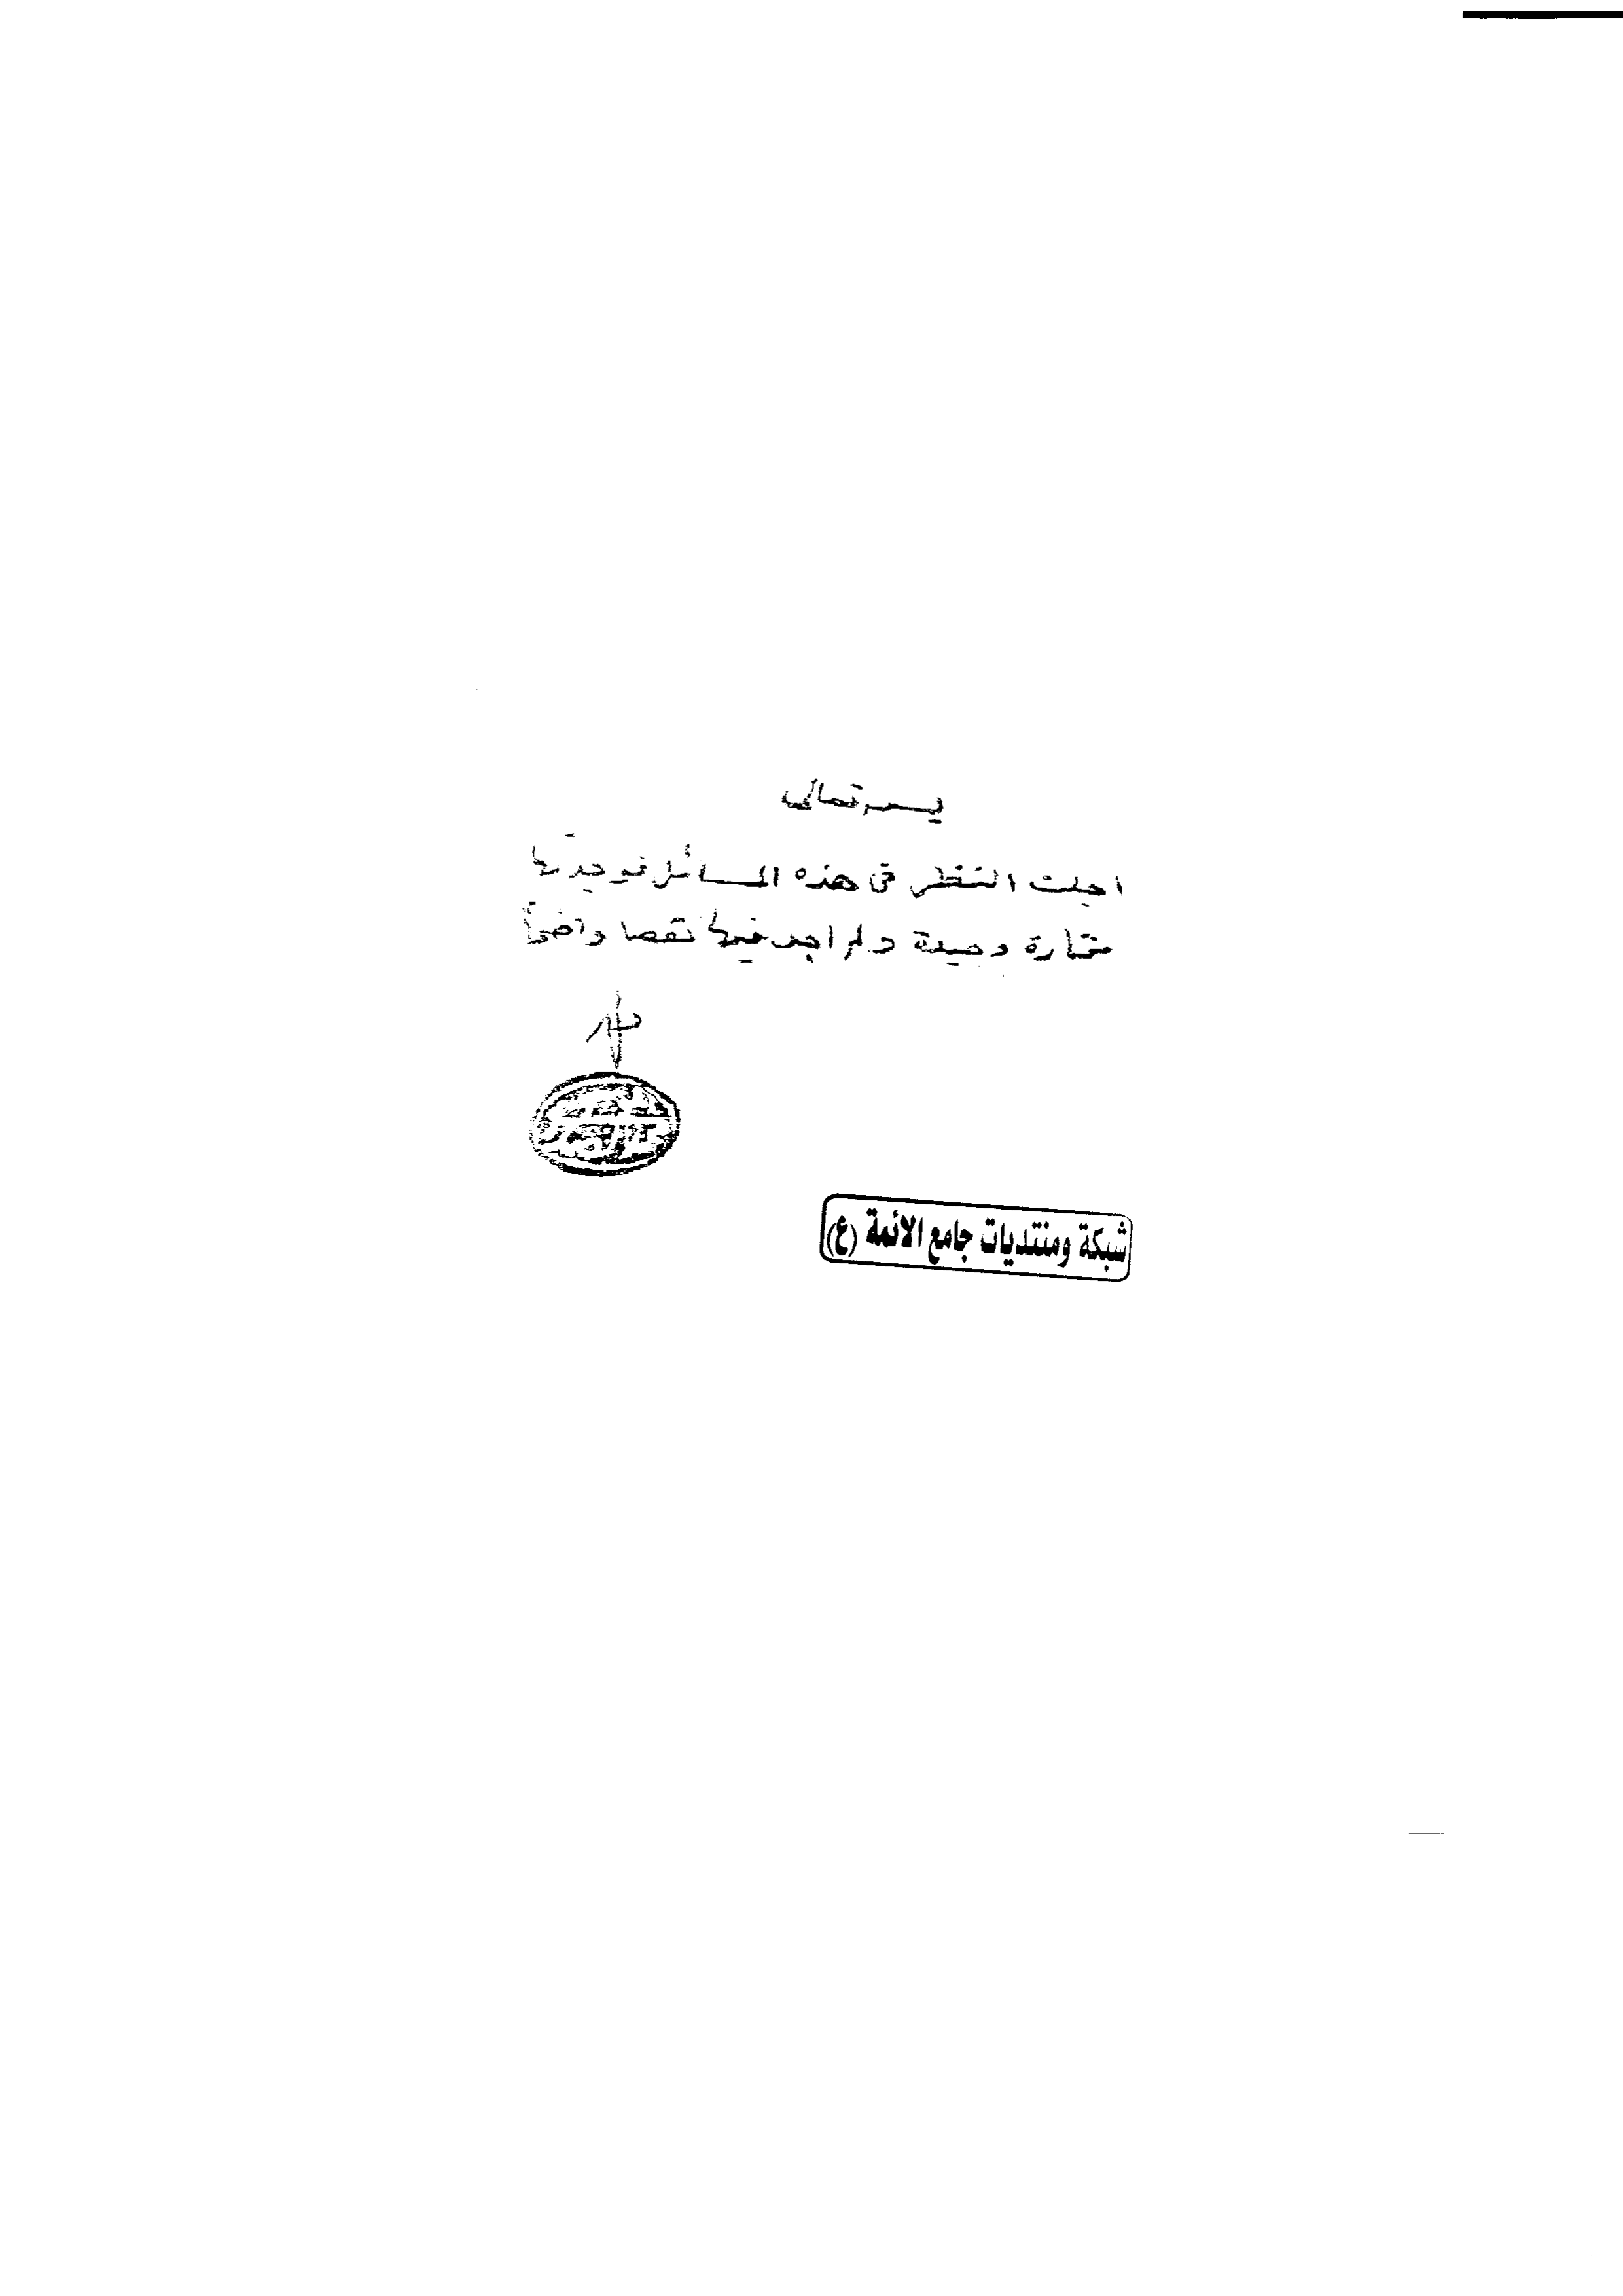 بسمه تعالى
اجلت النظر في هذه المسائل فوجدتها
مختارة وجيدة ولم اجد فيها نقصا واضحاً
شبكة ومنتديات جامع الائمة (ع)